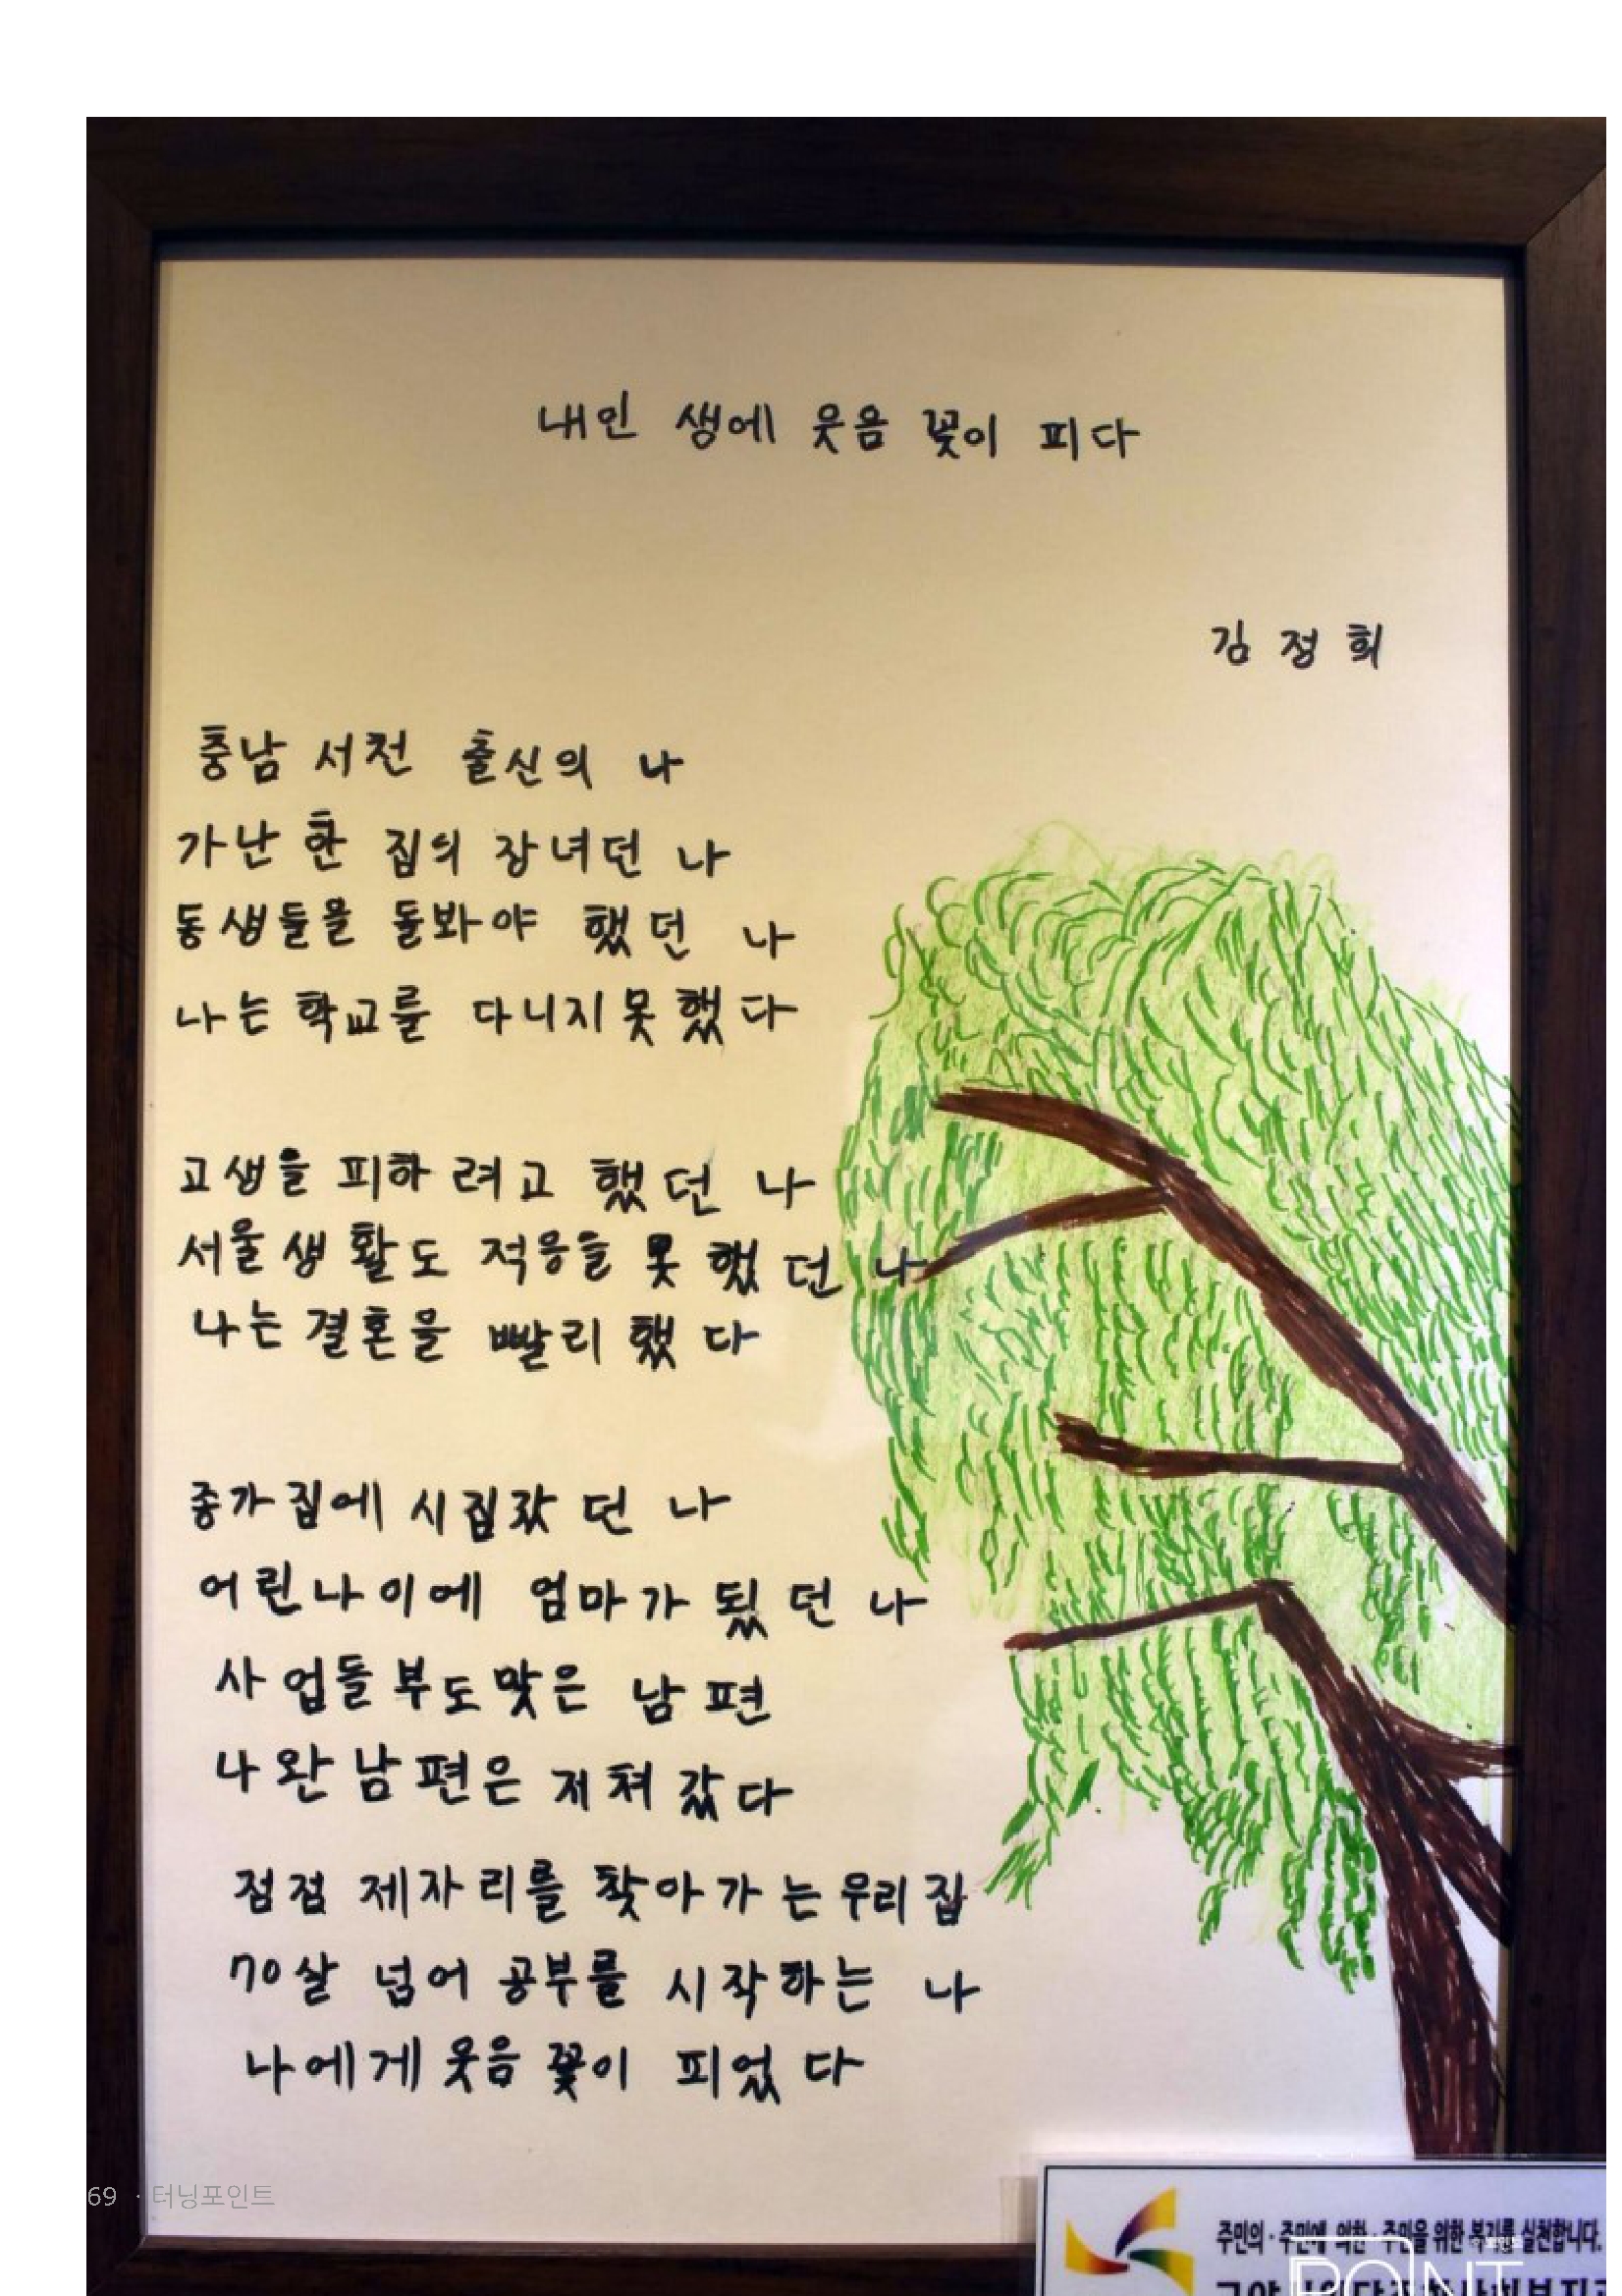 내인 생에 웃음 꽃이 피다
김 정 희
충남 서천 출신의 나
가난 한 집의 장녀던 나
동생들을 돌봐야 했던 나
나는 학교를 다니지 못했다
고생을 피하려고 했던 나
서울 생활도 적응을 못 했던 나
나는 결혼을 빨리 했다
종가집에 시집갔던 나
어린나이에 엄마가 됬던 나
사업들 부도맞은 남편
나완 남편은 지쳐 갔다
점점 제자리를 찾아가는 우리집
70살 넘어 공부를 시작하는 나
나에게 웃음 꽃이 피었다
69 · 터닝포인트
주민의·주민에 의한·주민을 위한 복지를 실천합니다.
POINT